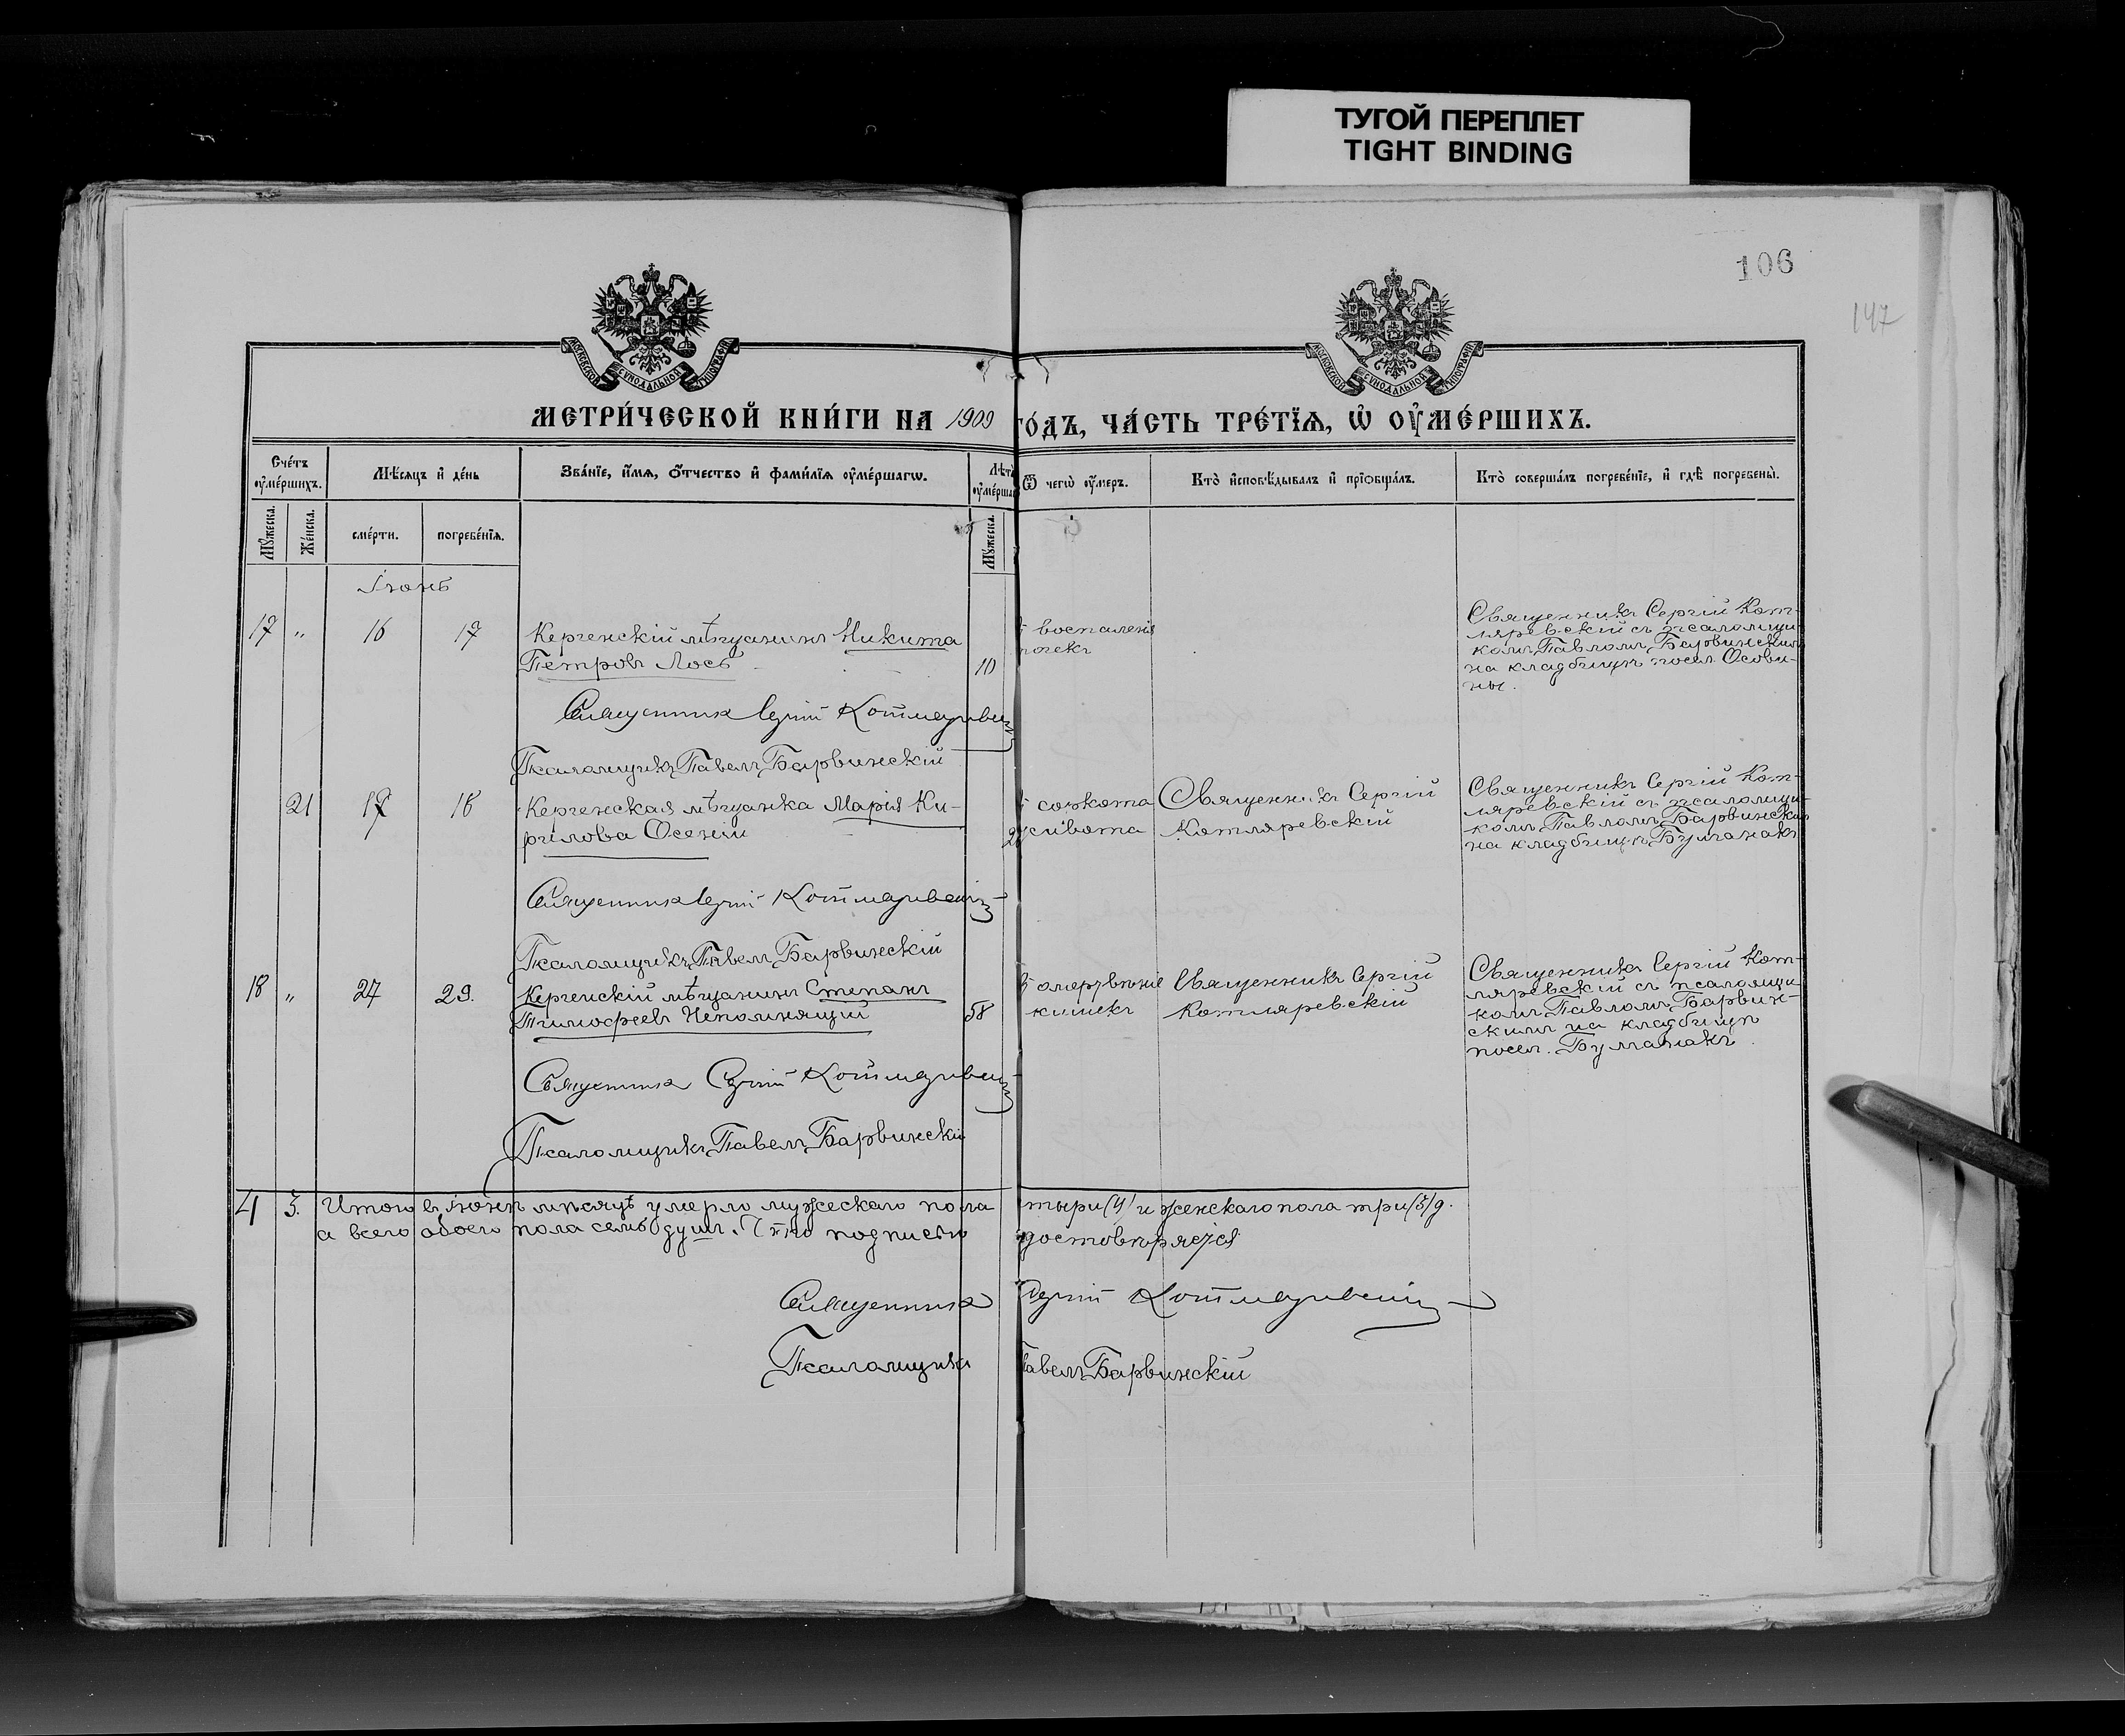 ТУГОЙ ПЕРЕПЛЕТ
TIGHT BINDING
106
147
МОСКОВСКОЙ СѴНОДАЛЬНОЙ ТИПОГРАФІИ
МОСКОВСКОЙ СѴНОДАЛЬНОЙ ТИПОГРАФІИ
МЕТРИ́ЧЕСКОЙ КНИ́ГИ НА 1909 ГО́ДЪ, ЧА́СТЬ ТРЕ́ТІЯ, Ѡ҆ ОУ҆МЕ́РШИХЪ.
Сче́тъ оу҆ме́ршихъ.
Мѣ́сяцъ и҆ де́нь
Зва́нїе, и҆́мя, ѻ҆́тчество и҆ фами́лїя оу҆ме́ршагѡ.
Лѣтъ
оу҆ме́рша
Ѿ чегѡ̀ оу҆́меръ.
Кто̀ и҆сповѣ́дывалъ и҆ прїѡбща́лъ.
Кто̀ соверша́лъ погребе́нїе, и҆ гдѣ̀ погребены̀.
Мꙋ́жеска.
Же́нска.
сме́рти.
погребе́нїѧ.
Мꙋ́жеска.
Іюнь
17 „ 16 17
Керченскій мѣщанинъ Никита
Петровъ Лось
10
воспаленія
почекъ
Священникъ Сергій Кот-
ляревскій съ псаломщи-
комъ Павломъ Барвинскимъ
на кладбищѣ посел. Осови-
ны.
Священникъ Сергій Котляревскій
Псаломщикъ Павелъ Барвинскій
21 17 18
Керченская мѣщанка Марія Ки-
рилова Осеній
живота
Священникъ Сергій
Котляревскій
Священникъ Сергій Кот-
ляревскій съ псаломщи-
комъ Павломъ Барвинским
на кладбищѣ Булганакъ
Священникъ Сергій Котляревскій
Псаломщикъ Павелъ Барвинскій
18 „ 27 29.
Керченскій мѣщанинъ Степанъ
Тимофеевъ Непомнящий
58
омертвѣніе
кишекъ
Священникъ Сергій
Котляревскій
Священникъ Сергій Кот-
ляревскій съ псаломщи-
комъ Павломъ Барвин-
скимъ на кладбищѣ
посел. Булганакъ
Священникъ Сергій Котляревскій
Псаломщикъ Павелъ Барвинскій
4 3. Итого въ іюнѣ мѣсяцѣ умерло мужескаго пола тыри (4) и женскаго пола три (3) д.
а всего обоего пола семь душъ. подписью достовѣряется
Священникъ Сергій Котляревскій
Псаломщикъ Павелъ Барвинскій